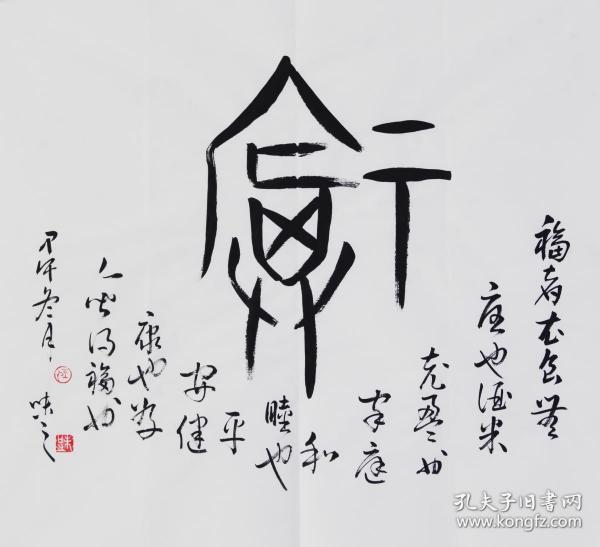 福
福者衣食無
也酒米
充盈也
家庭
和
睦也
平
安健
康也
人皆得福也
甲午冬月
味之
孔夫子旧书网
www.kongfz.com